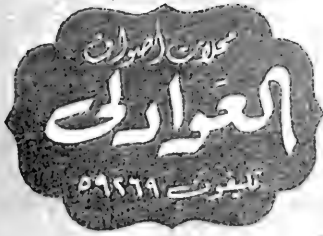 محلات اصواف
العوادلى
تليفون ٥٩٢٦٩